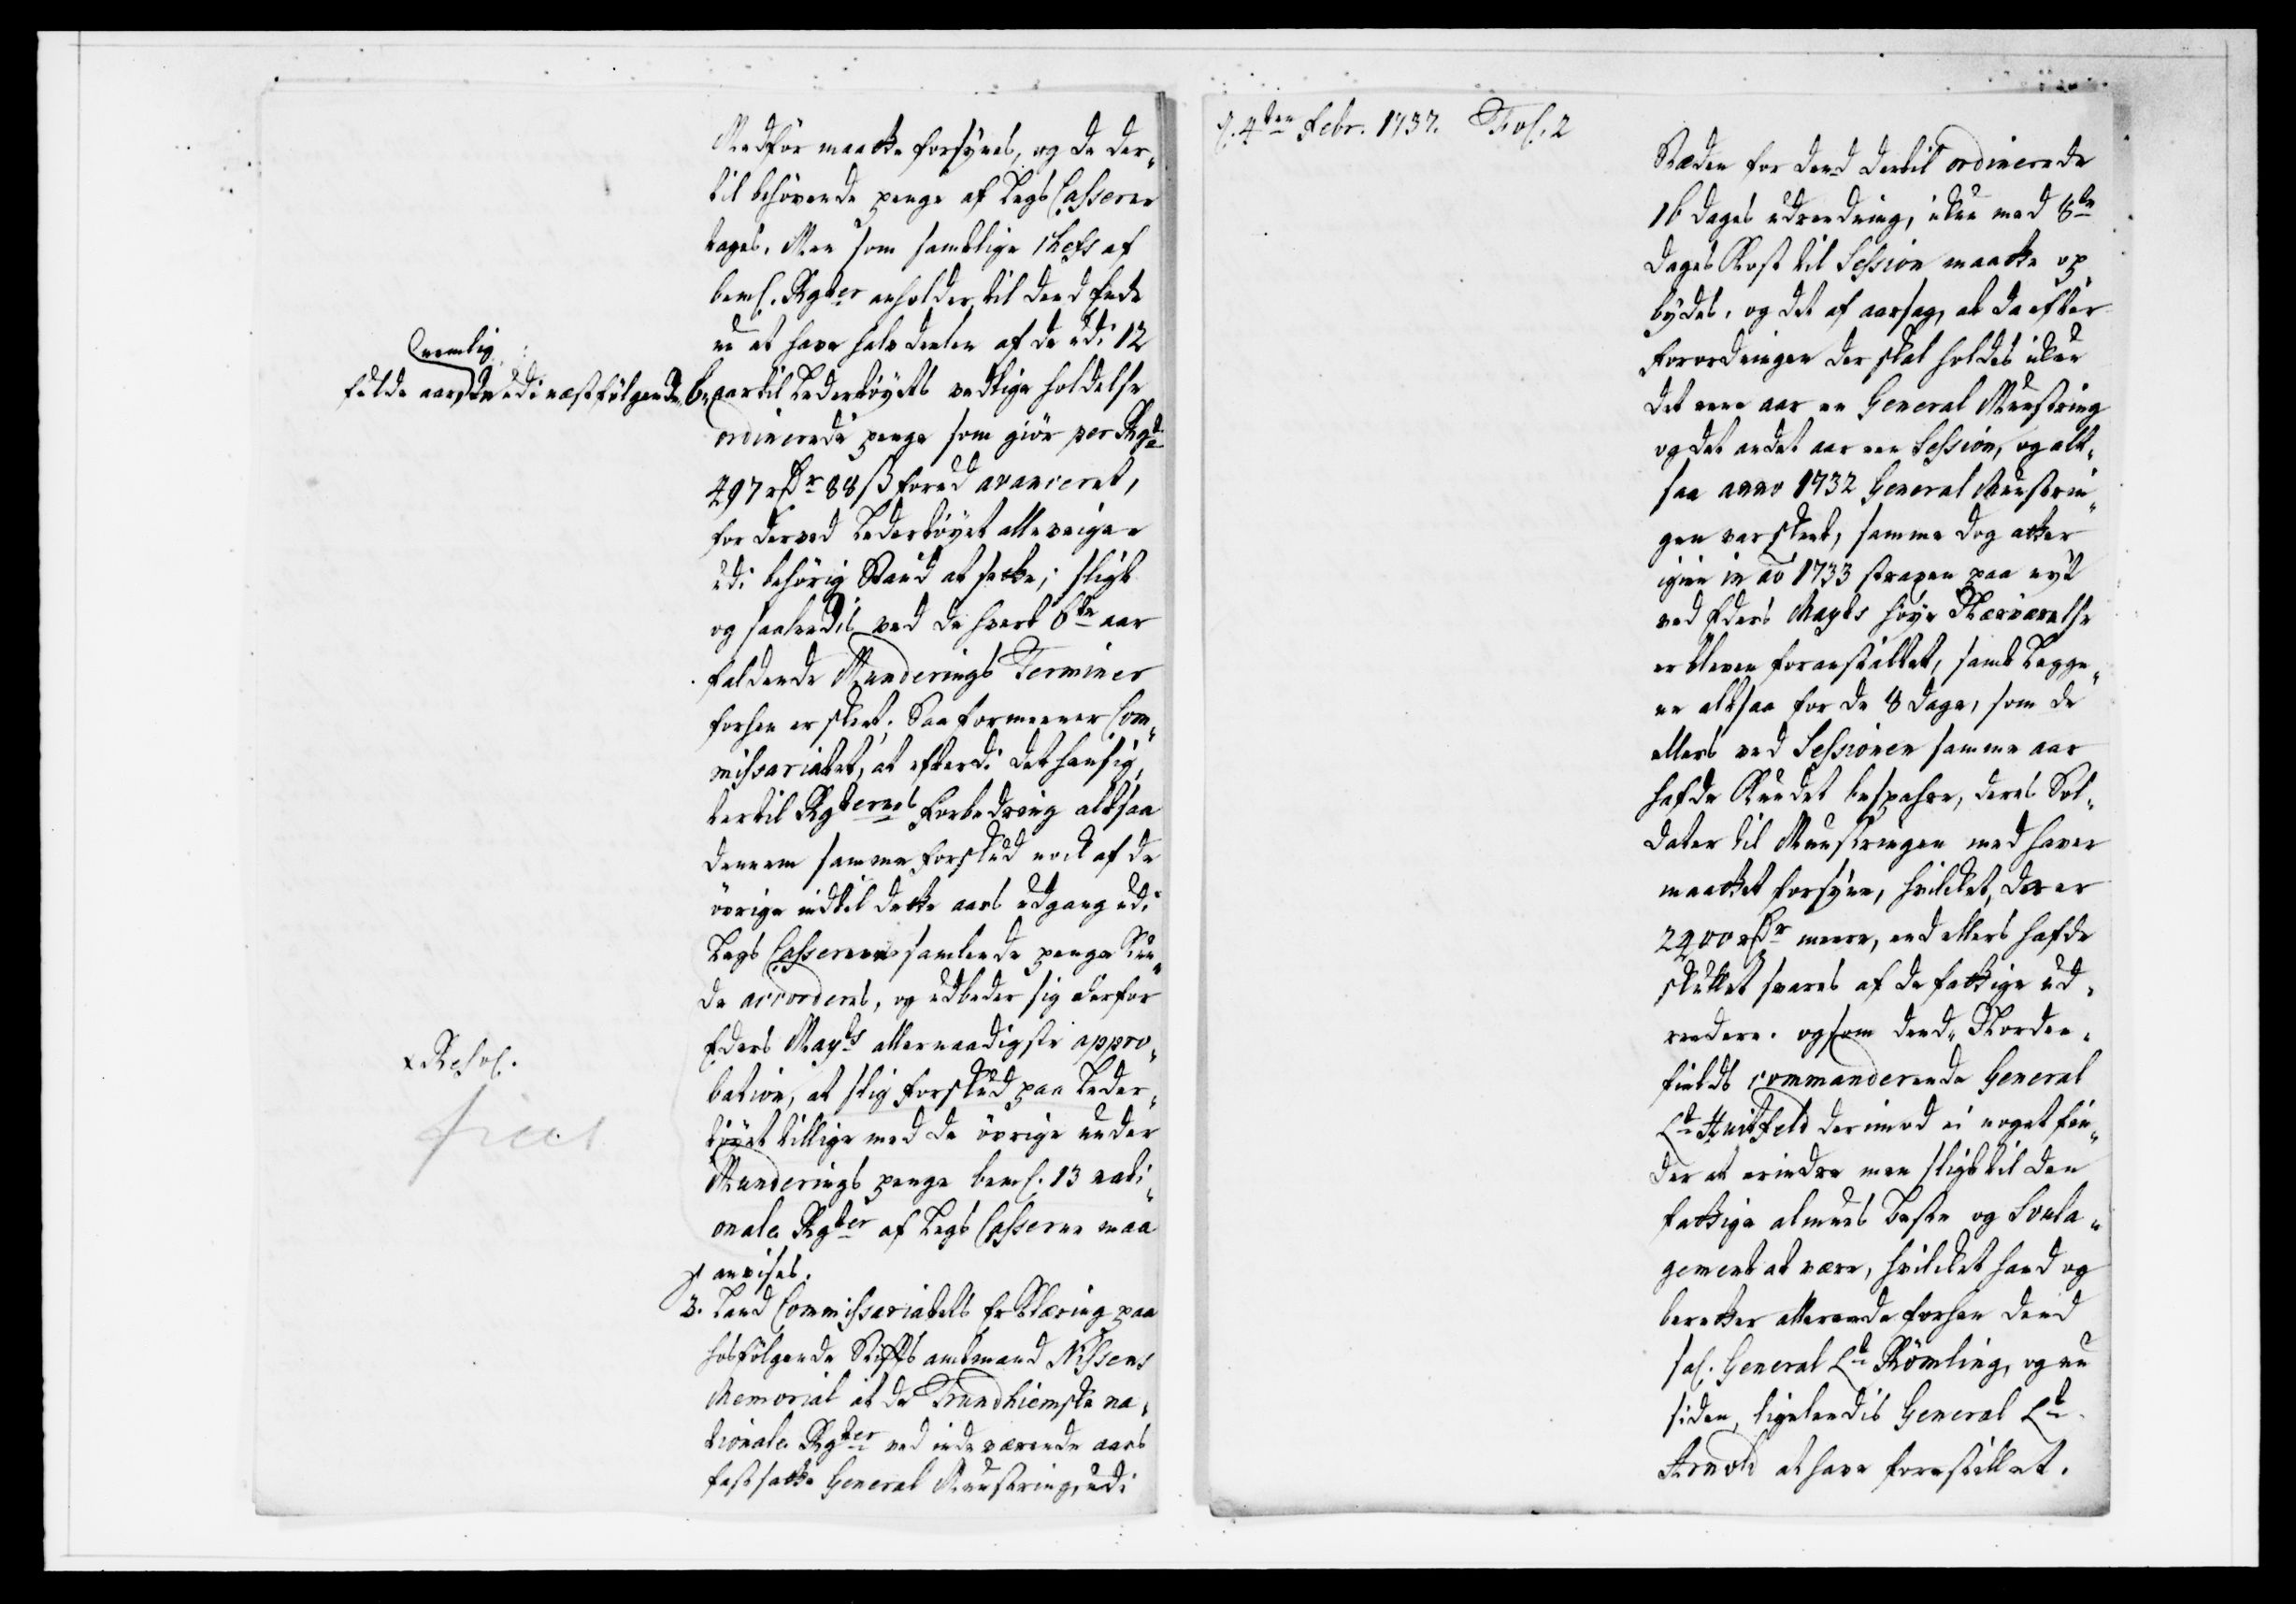 Medfør maatte forsynes, og de der,
til behövende penge af Legs Casserer
tages. Men som samtlige Chefs af
bem. Rgter anholder, til dend Ende
nu at have halvdeelen af de udi 12
(nemlig
fulde aar, den udi næstfølgende 6, aar til Ledertöyets vedlige holdelse
ordinerede penge som giör per Rgt
497 rdr 88 ß forud avanceret,
for derved Ledertöyet alleveigne
udi behörig Stand at sette; sligt
og saaleedis ved de hvert 6te aar
faldende Munderings Terminer
forhen er skeet; Saa formeener Com,
missariatet, at efterdi det hensig,
ter til Rgternes Forbedring altsaa
dennem samme forskud nock af de
övrige indtil dette aars udgang udi
Legs Casserne samlende penge kun,
de accorderes, og udbeder sig derfor
Eders Mayts allernaadigste appro,
bation, at slig forskud paa Leder,
töyet tillige med de övrige under
Munderings penge bem. 13 nati,
onale Rgter af Legs Casserne maa
anvises.
x Resol.
fiat
3. Land Commissariatets Erklæring paa
hosfölgende Stiftsamtmand Nissens
Memorial at de Trundhiemske na,
tionale Rgter ved indeværende aars
fastsatte General Munstring, udi
d. 4den Febr. 1737. Fol. 2
Steden for dend dertil ordinerede
16 dages udreedning, icun med 8te
dages Kost til Session maatte op
bydes, og det af aarsag, at da efter
forordningen der skal holdes icun
det eene aar en General Munstring
og det andet aar een Session, og alt,
saa anno 1732 General Munstrin,
gen var skeet, samme dog atter
igien in ao 1733 strapen paa nyt
ved Eders Mayts höye Nærværelse
er bleven foranstaltet, samt Legge,
ne altsaa for de 8 dage, som de
ellers ved Sessionen samme aar
hafde kundet bespahre, deres Sol,
dater til Munstringen med haver
maattet forsyne, hvilcket, der er
2400 rdr meere, end ellers hafde
skullet svares af de fattige ud,
reedere. og som dend Norden,
fields commanderende General
Lt Huitfeld derimod ei noget fin,
der at erindre men sligt til den
fattige almues beste og Soula,
gement at være, hvilcket hand og
beretter allereede forhen dend
sal. General Lt Römling, og nu
siden, ligeleedis General Lt
Arnold at have forestillet.